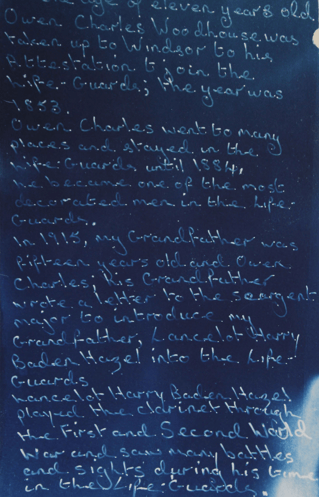 the age of eleven years old
Owen Charles Woodhouse was
taken up to Windsor to his
Attestation to join the
Life-Guards, the year was
1853.
Owen Charles went to many
places and stayed in the
Life-Guards until 1884,
he became one of the most
decorated men in the Life-
Guards.
In 1915, my Grandfather was
fifteen years old and Owen
Charles, his Grandfather
wrote a letter to the seargent
major to introduce my
Grandfather, Lancelot Harry
Baden Hazel into the Life-
Guards
Lancelot Harry Baden Hazel
played the clarinet through
the First and Second World
War and saw many battles
and sights during his time
in the Life-Guards